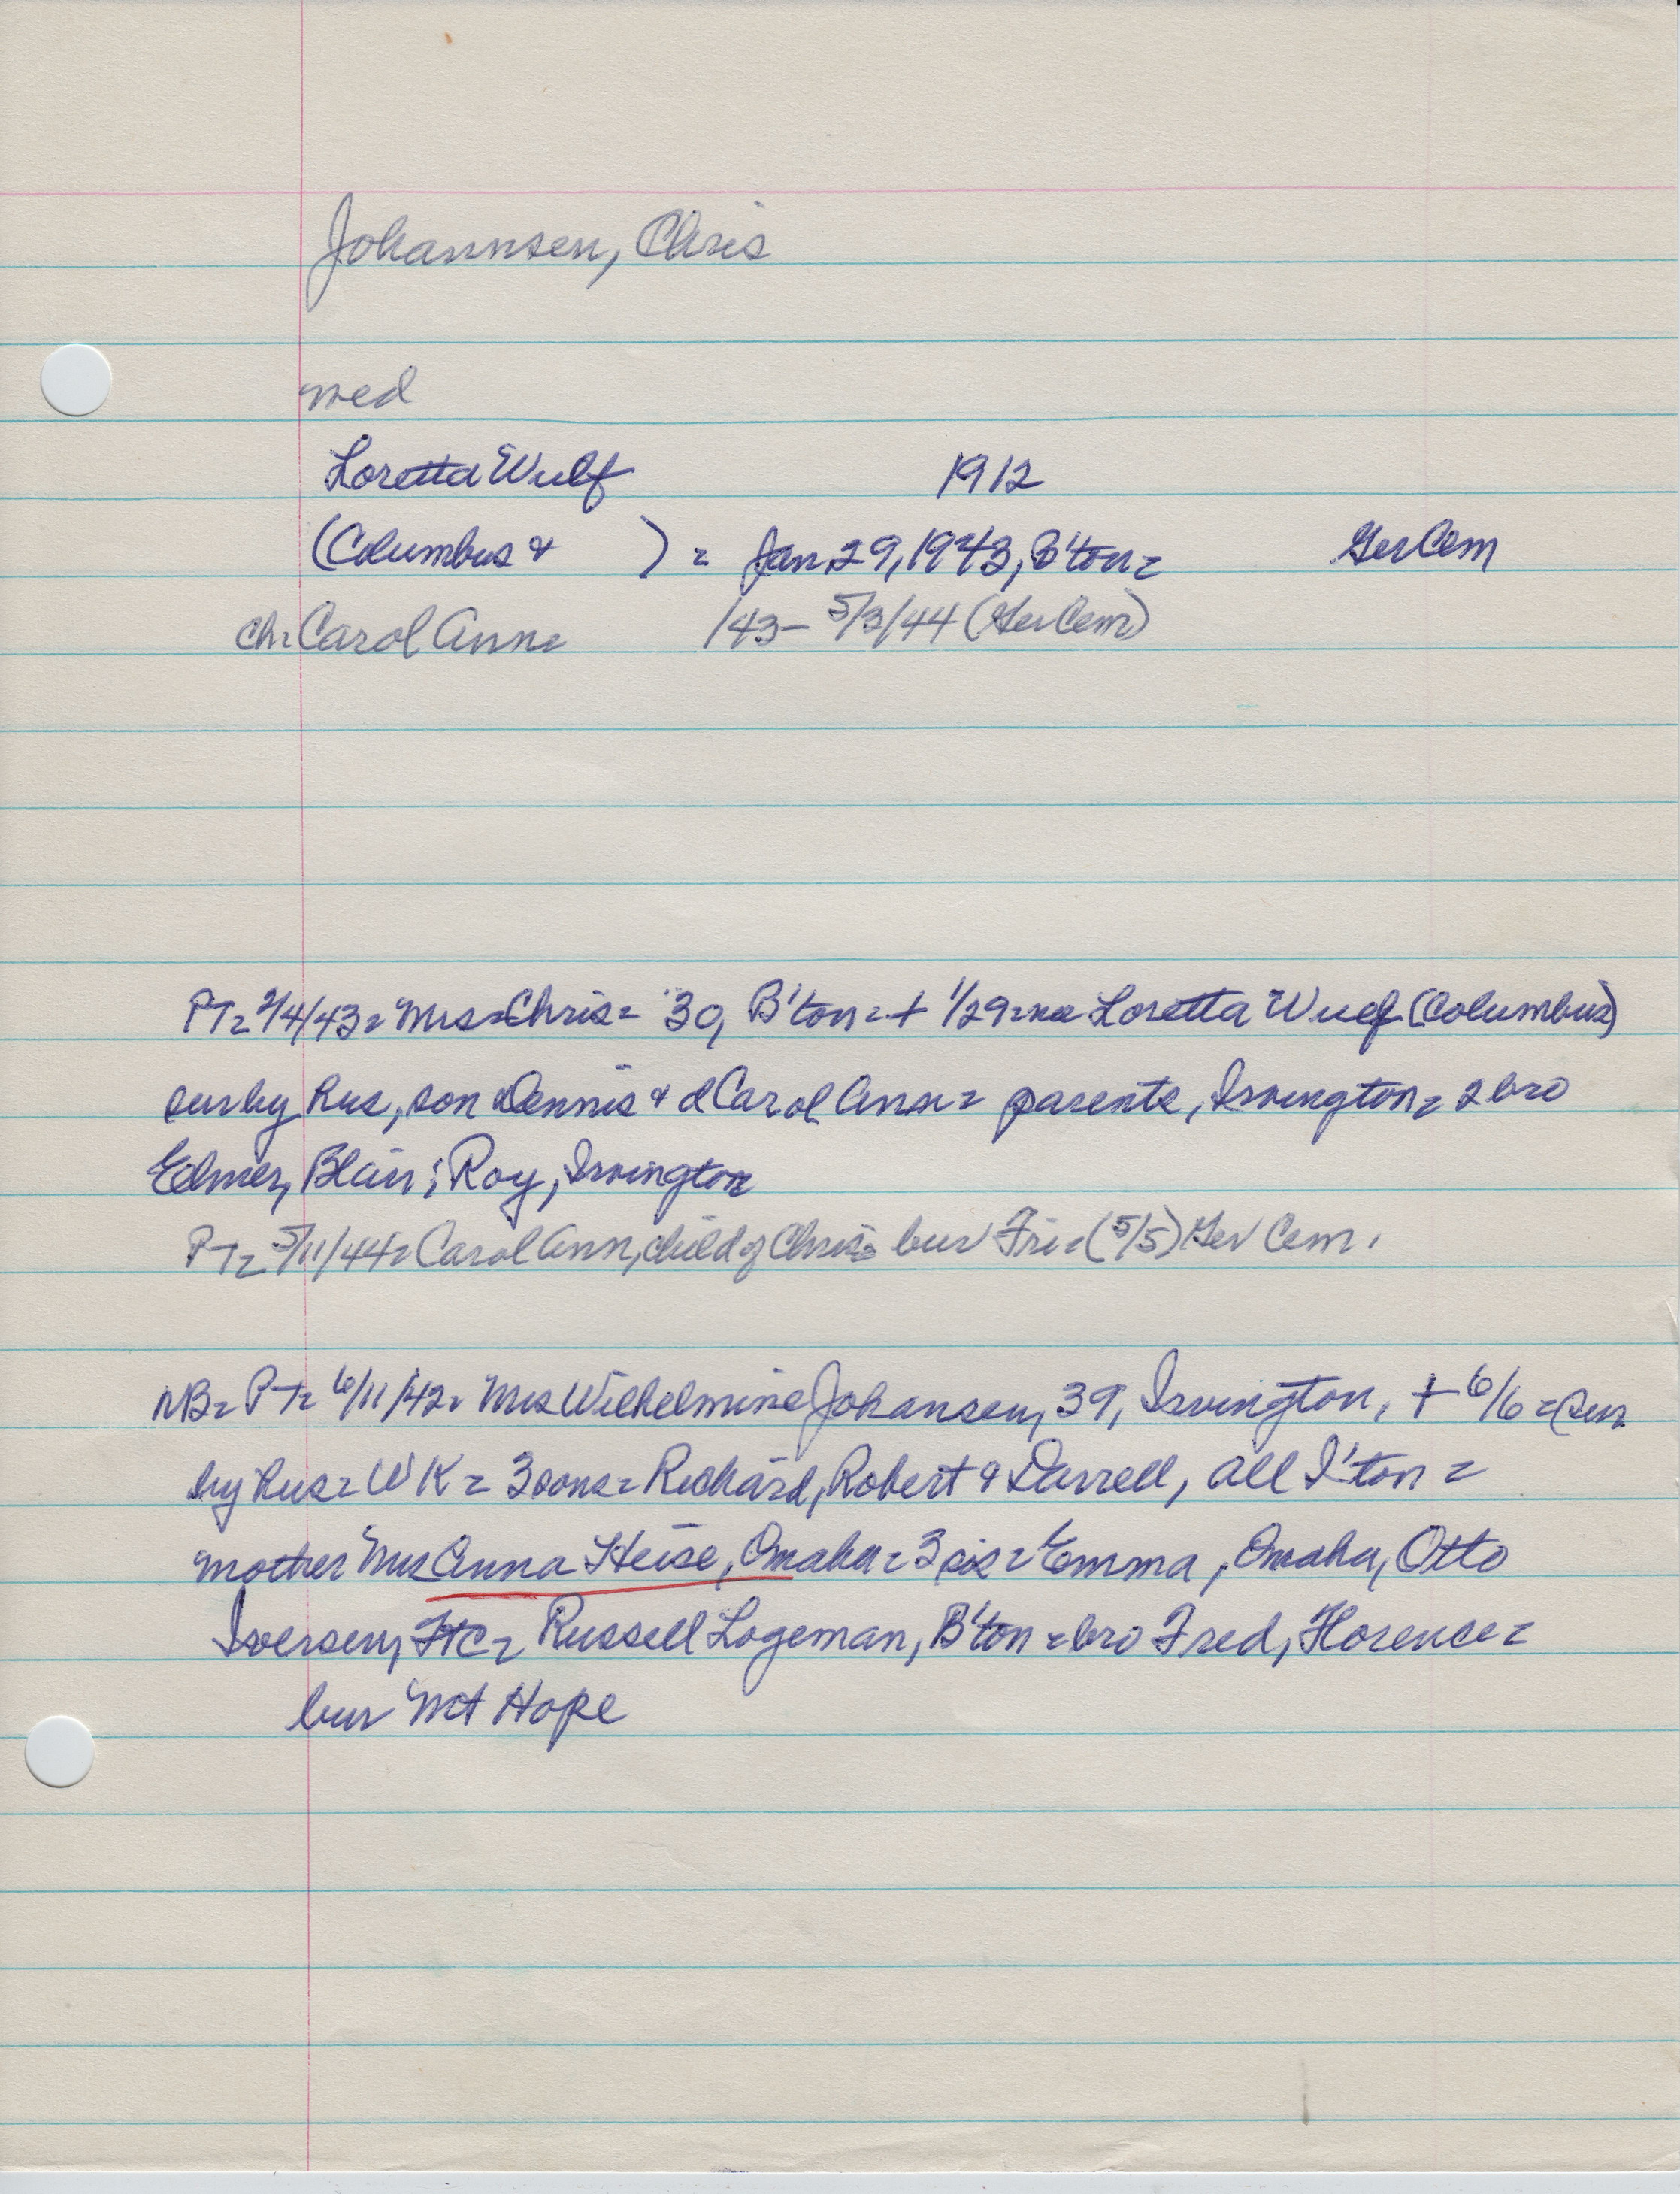 Johannsen, Chris
med
Loretta Wulf 1912
(Columbus & ) = Jan 29, 1943, B'ton = Ger Cem
ch: Carol Ann = /43 - 5/3/44 (Ger Cem)
PT = 2/4/43 = Mrs = Chris = 30, B'ton = + 1/29 = nee Loretta Wulf (Columbus)
sur by hus, son Dennis & d Carol Ann = parents, Irvington = 2 bro
Elmer, Blair; Roy, Irvington
PT = 5/11/44 = Carol Ann, child of Chris = bur Fri = (5/5) Ger Cem.
NB = PT = 6/11/42 = Mrs Wilhelmine Johansen, 39, Irvington, + 6/6 = sur
by hus = WK = 3 sons = Richard, Robert & Darrell, all I'ton =
mother Mrs Anna Heise, Omaha = 3 sis = Emma, Omaha, Otto
Iversen, FtC = Russell Logeman, B'ton = bro Fred, Florence =
bur Mt Hope